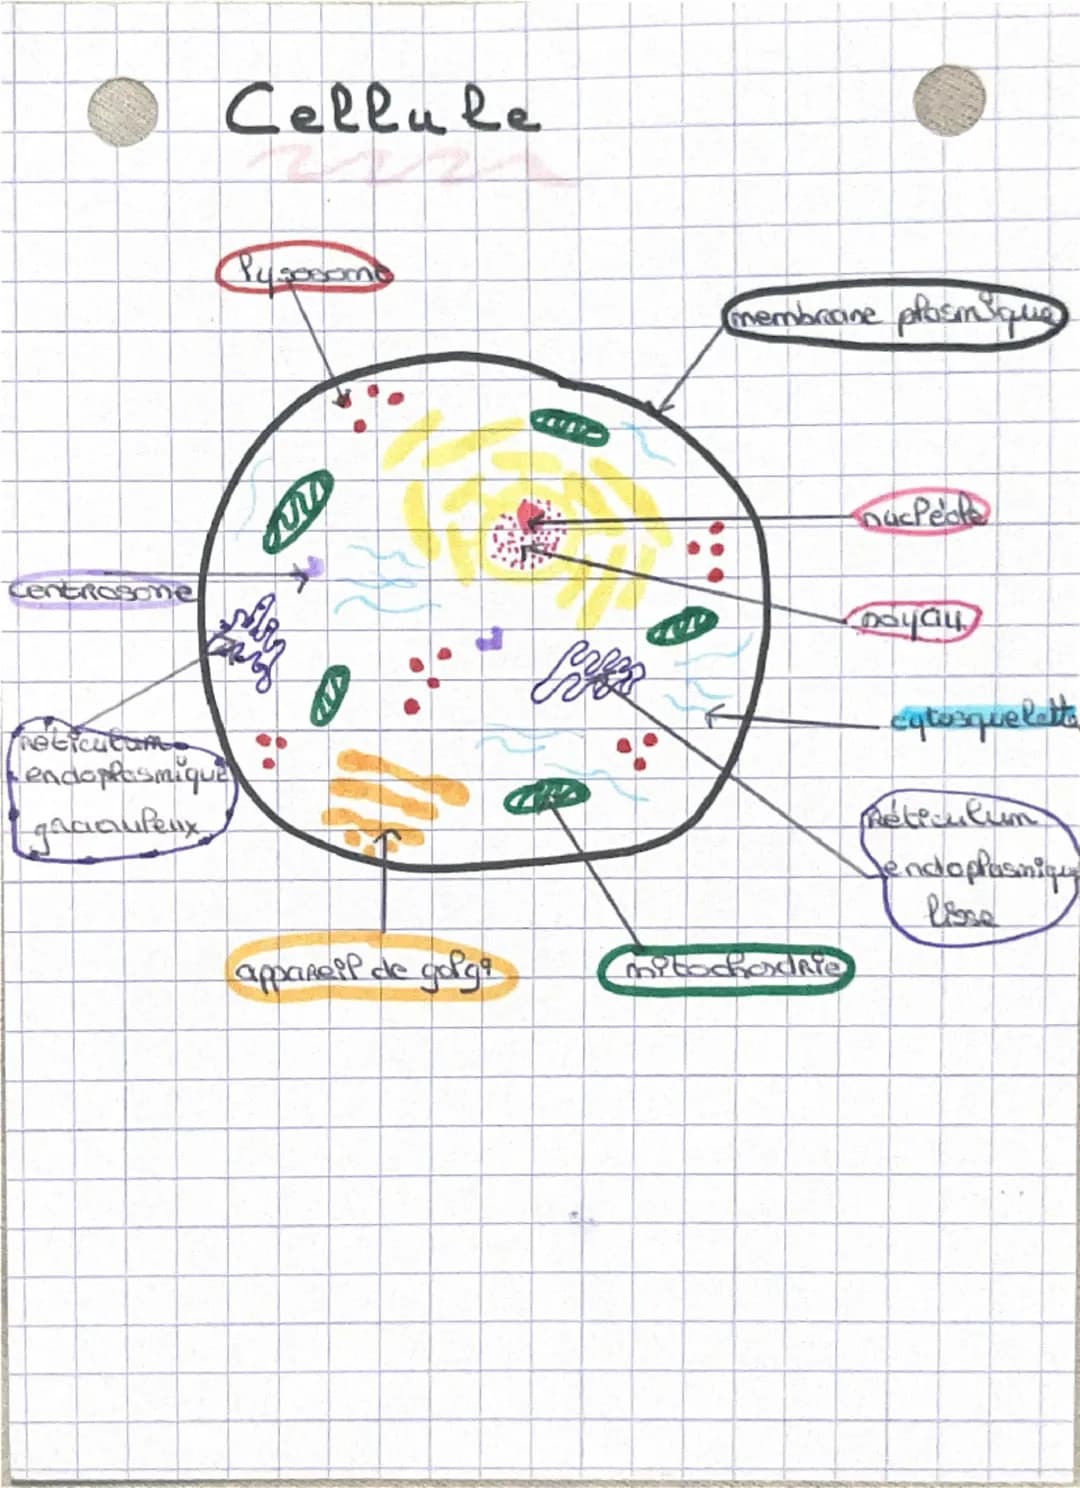 Cellule
lysosome
membrane plasmique
nucléole
centrosome
noyau
cytosquelette
réticulum
endoplasmique
granuleux
Réticulum
endoplasmique
lisse
appareil de golgi
mitochondrie